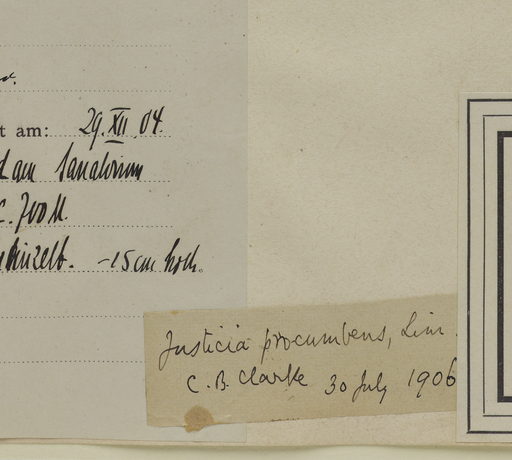 t am: 29. XII. 04.
am Sanatorium
700 M.
-15 cm hoch.
Justicia procumbens, Linn.
C. B. Clarke 30 July 1906